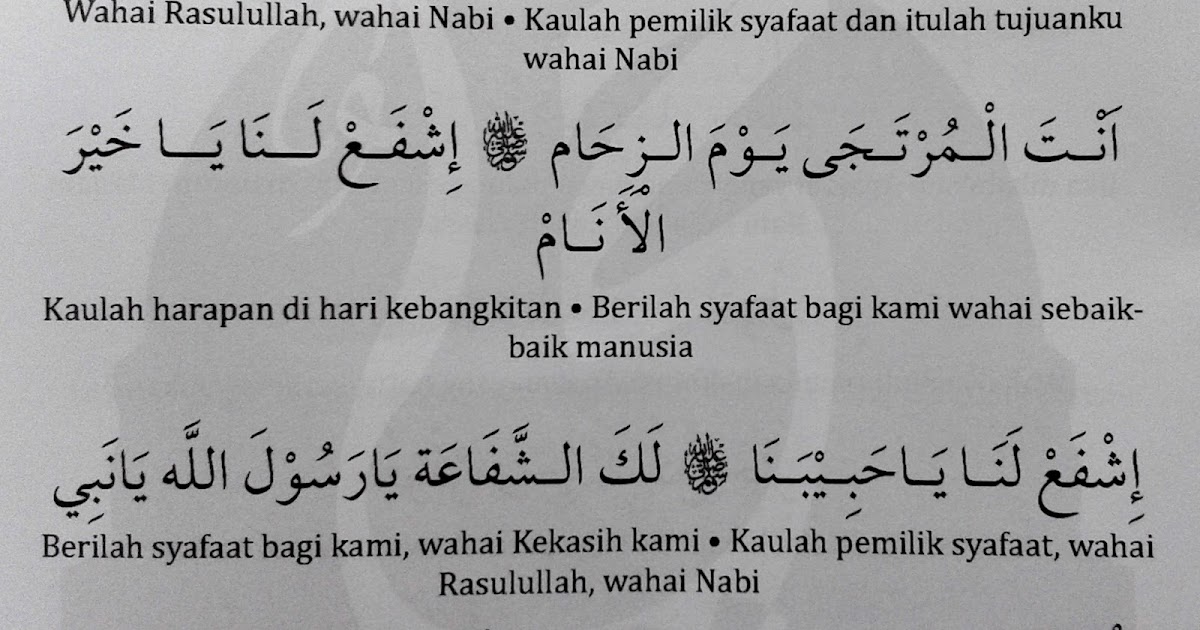 Wahai Rasulullah, wahai Nabi • Kaulah pemilik syafaat dan itulah tujuanku
wahai Nabi
اَنْتَ الْمُرْتَجَى يَوْمَ الزِحَام ﷺ إِشْفَعْ لَنَا يَا خَيْرَ
الْأَنَامْ
Kaulah harapan di hari kebangkitan • Berilah syafaat bagi kami wahai sebaik-
baik manusia
إِشْفَعْ لَنَا يَاحَبِيْبَنَا ﷺ لَكَ الشَّفَاعَة يَارَسُوْلَ اللَّه يَانَبِي
Berilah syafaat bagi kami, wahai Kekasih kami • Kaulah pemilik syafaat, wahai
Rasulullah, wahai Nabi